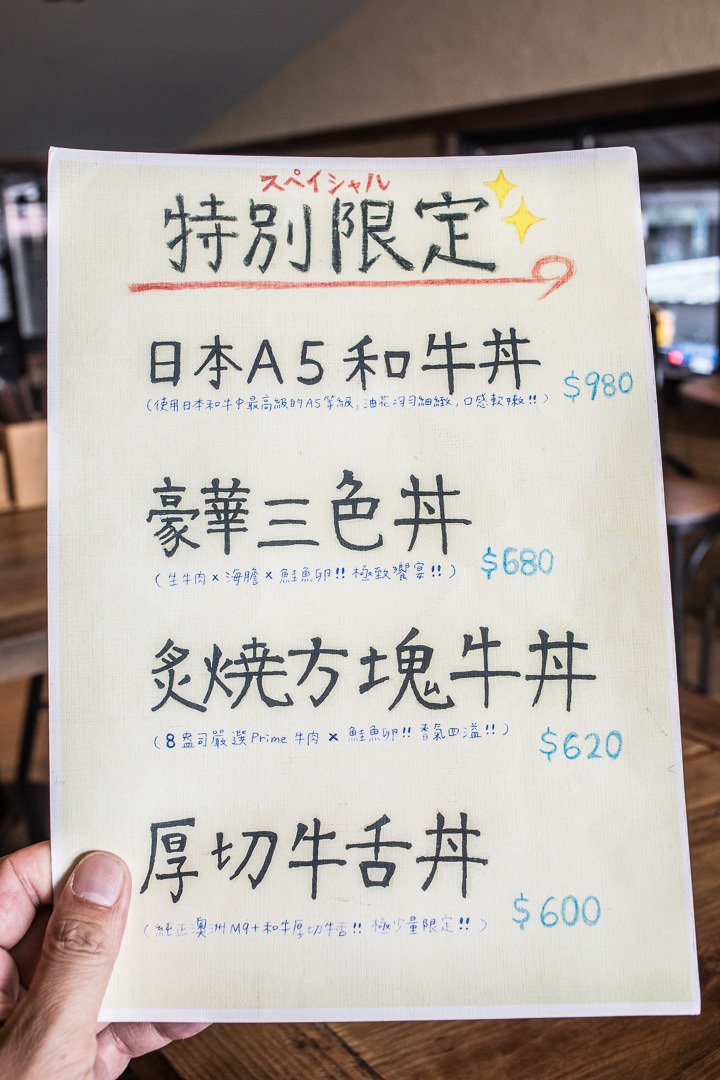 スペイシャル
特別限定
日本A5和牛丼
$980
(使用日本和牛中最高級的A5等級,油花均勻細緻,口感軟嫩!!)
豪華三色丼
$680
(生牛肉×海膽×鮭魚卵!!極致饗宴!!)
炙燒方塊牛丼
(8盎司嚴選Prime牛肉×鮭魚卵!!香氣四溢!!)
$620
厚切牛舌丼
$600
(純正澳洲M9+和牛厚切牛舌!!極少量限定!!)